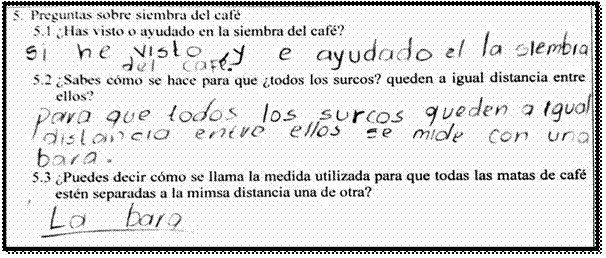 5. Preguntas sobre siembra del café
5.1 ¿Has visto o ayudado en la siembra del café?
si he visto y e ayudado el la siembra
del café.
5.2 ¿Sabes cómo se hace para que ¿todos los surcos? queden a igual distancia entre
ellos?
para que todos los surcos queden a igual
distancia entre ellos se mide con una
bara.
5.3 ¿Puedes decir cómo se llama la medida utilizada para que todas las matas de café
estén separadas a la mimsa distancia una de otra?
La bara